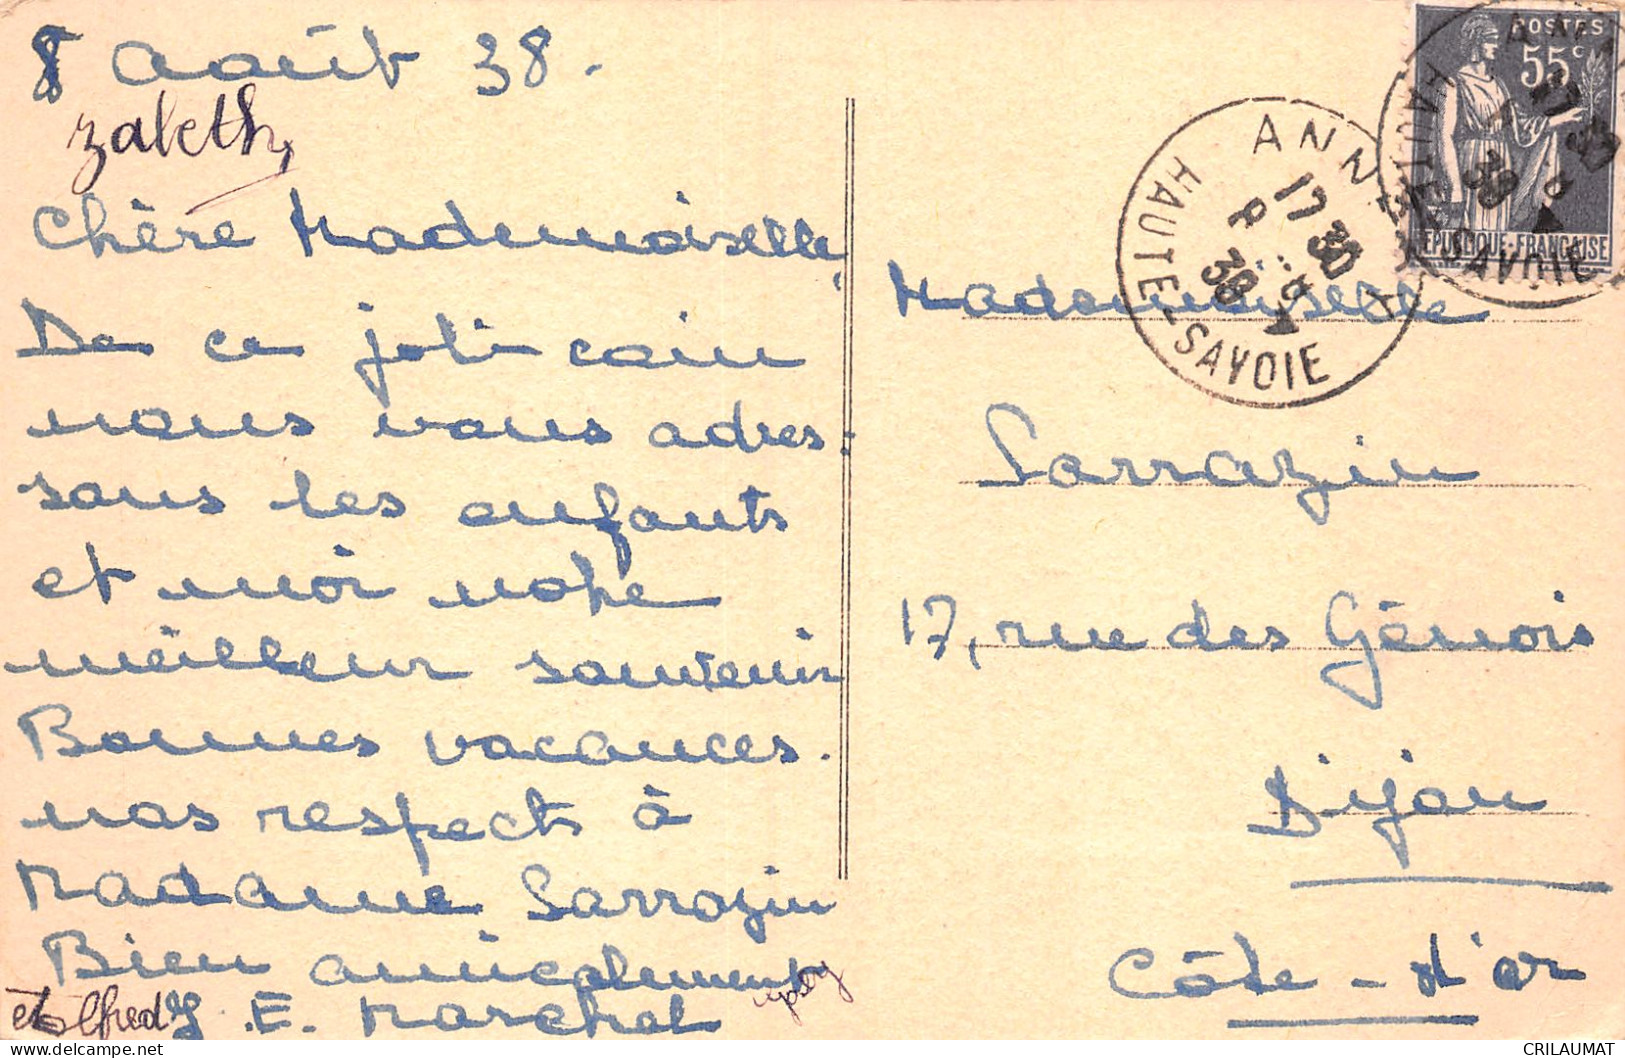 8 Août 38.
zabeth,
Chère Mademoiselle,
De ce joli coin
nous vous adres-
sons les enfants
et moi notre
meilleur souvenir
Bonnes vacances.
nos respects à
Madame Sarrazin
Bien amicalement
et Alfred J. E. Marchal
POSTES
55c
REPUBLIQUE-FRANÇAISE
ANNECY
17 30
8 8
38
HAUTE-SAVOIE
Mademoiselle
Sarrazin
17, rue des Génois
Dijon
Côte-d'or
CRILAUMAT